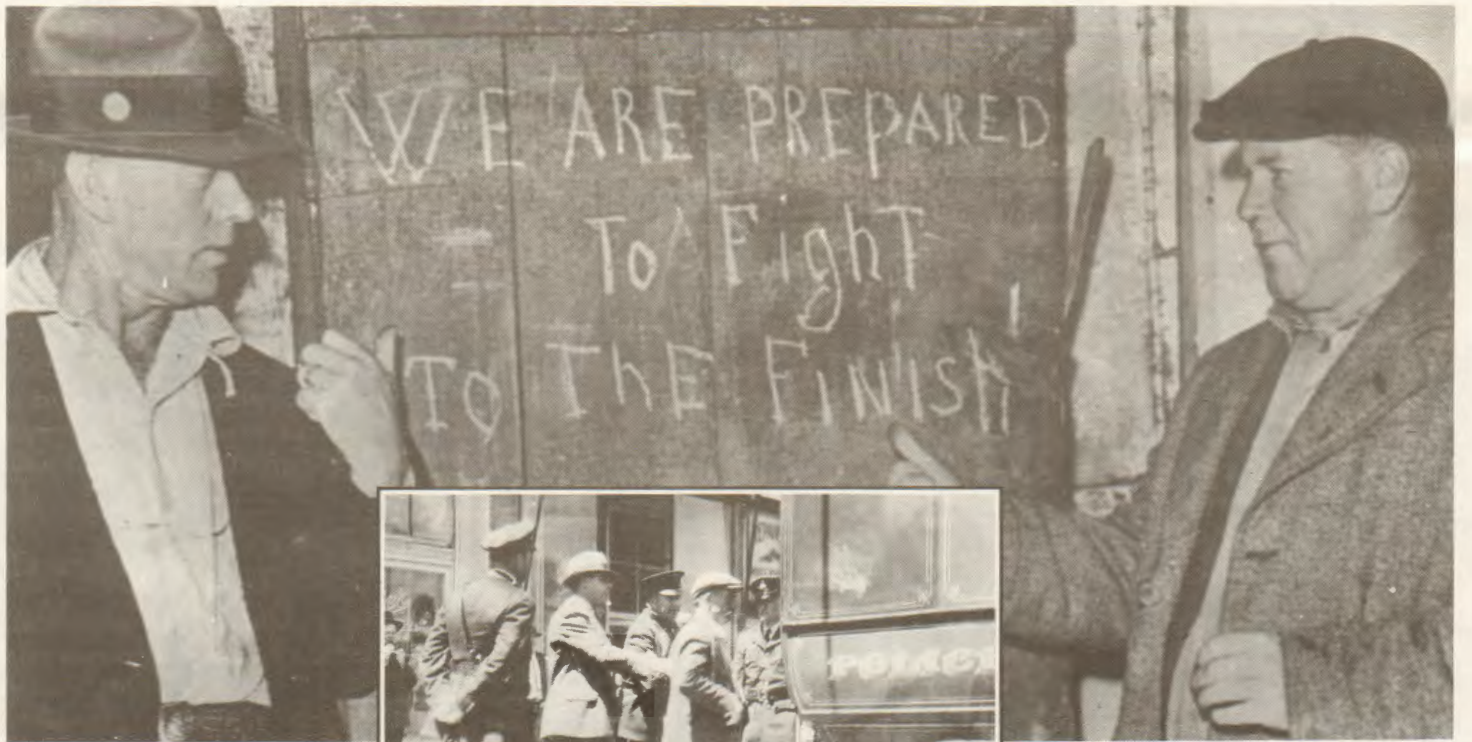 WE ARE PREPARED
To Fight
To ThE FiNISh
POLICE